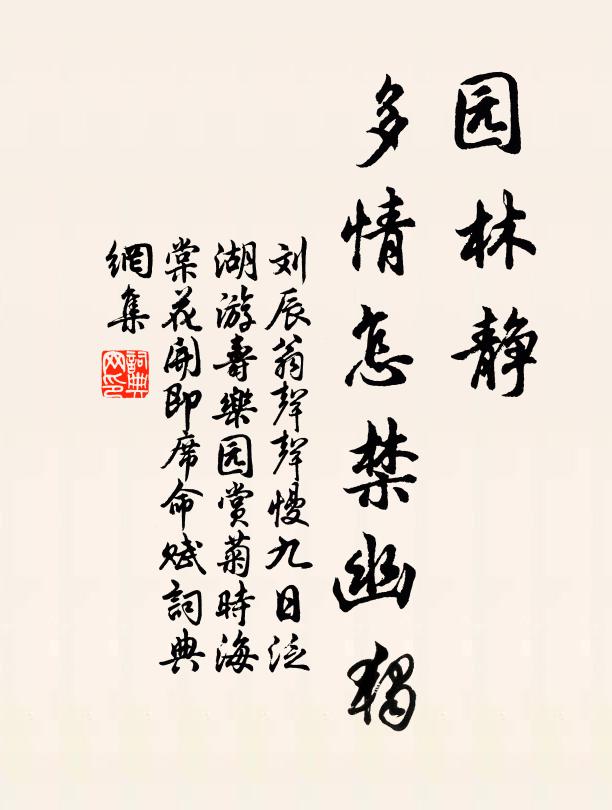 园林静
多情怎禁幽独
刘辰翁声声慢九日泛
湖游寿樂园赏菊時海
棠花開即席命赋詞典
網集
詞典
网印